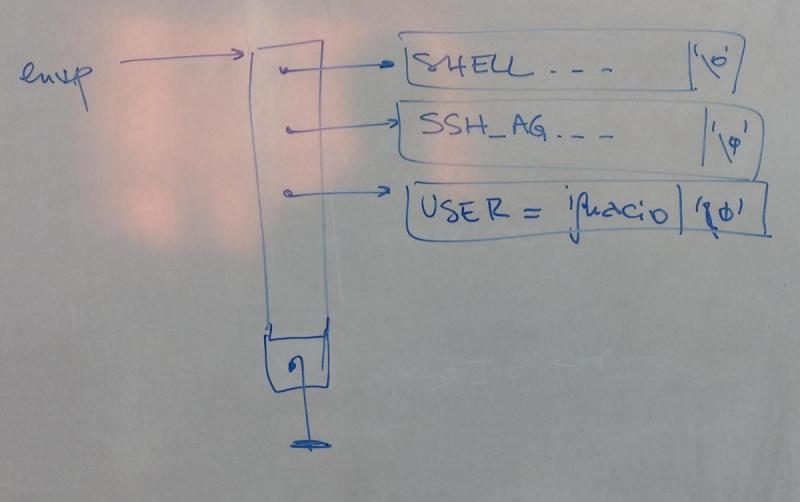 envp
SHELL . - - '\0'
SSH_AG. - - '\0'
USER = ignacio '\0'